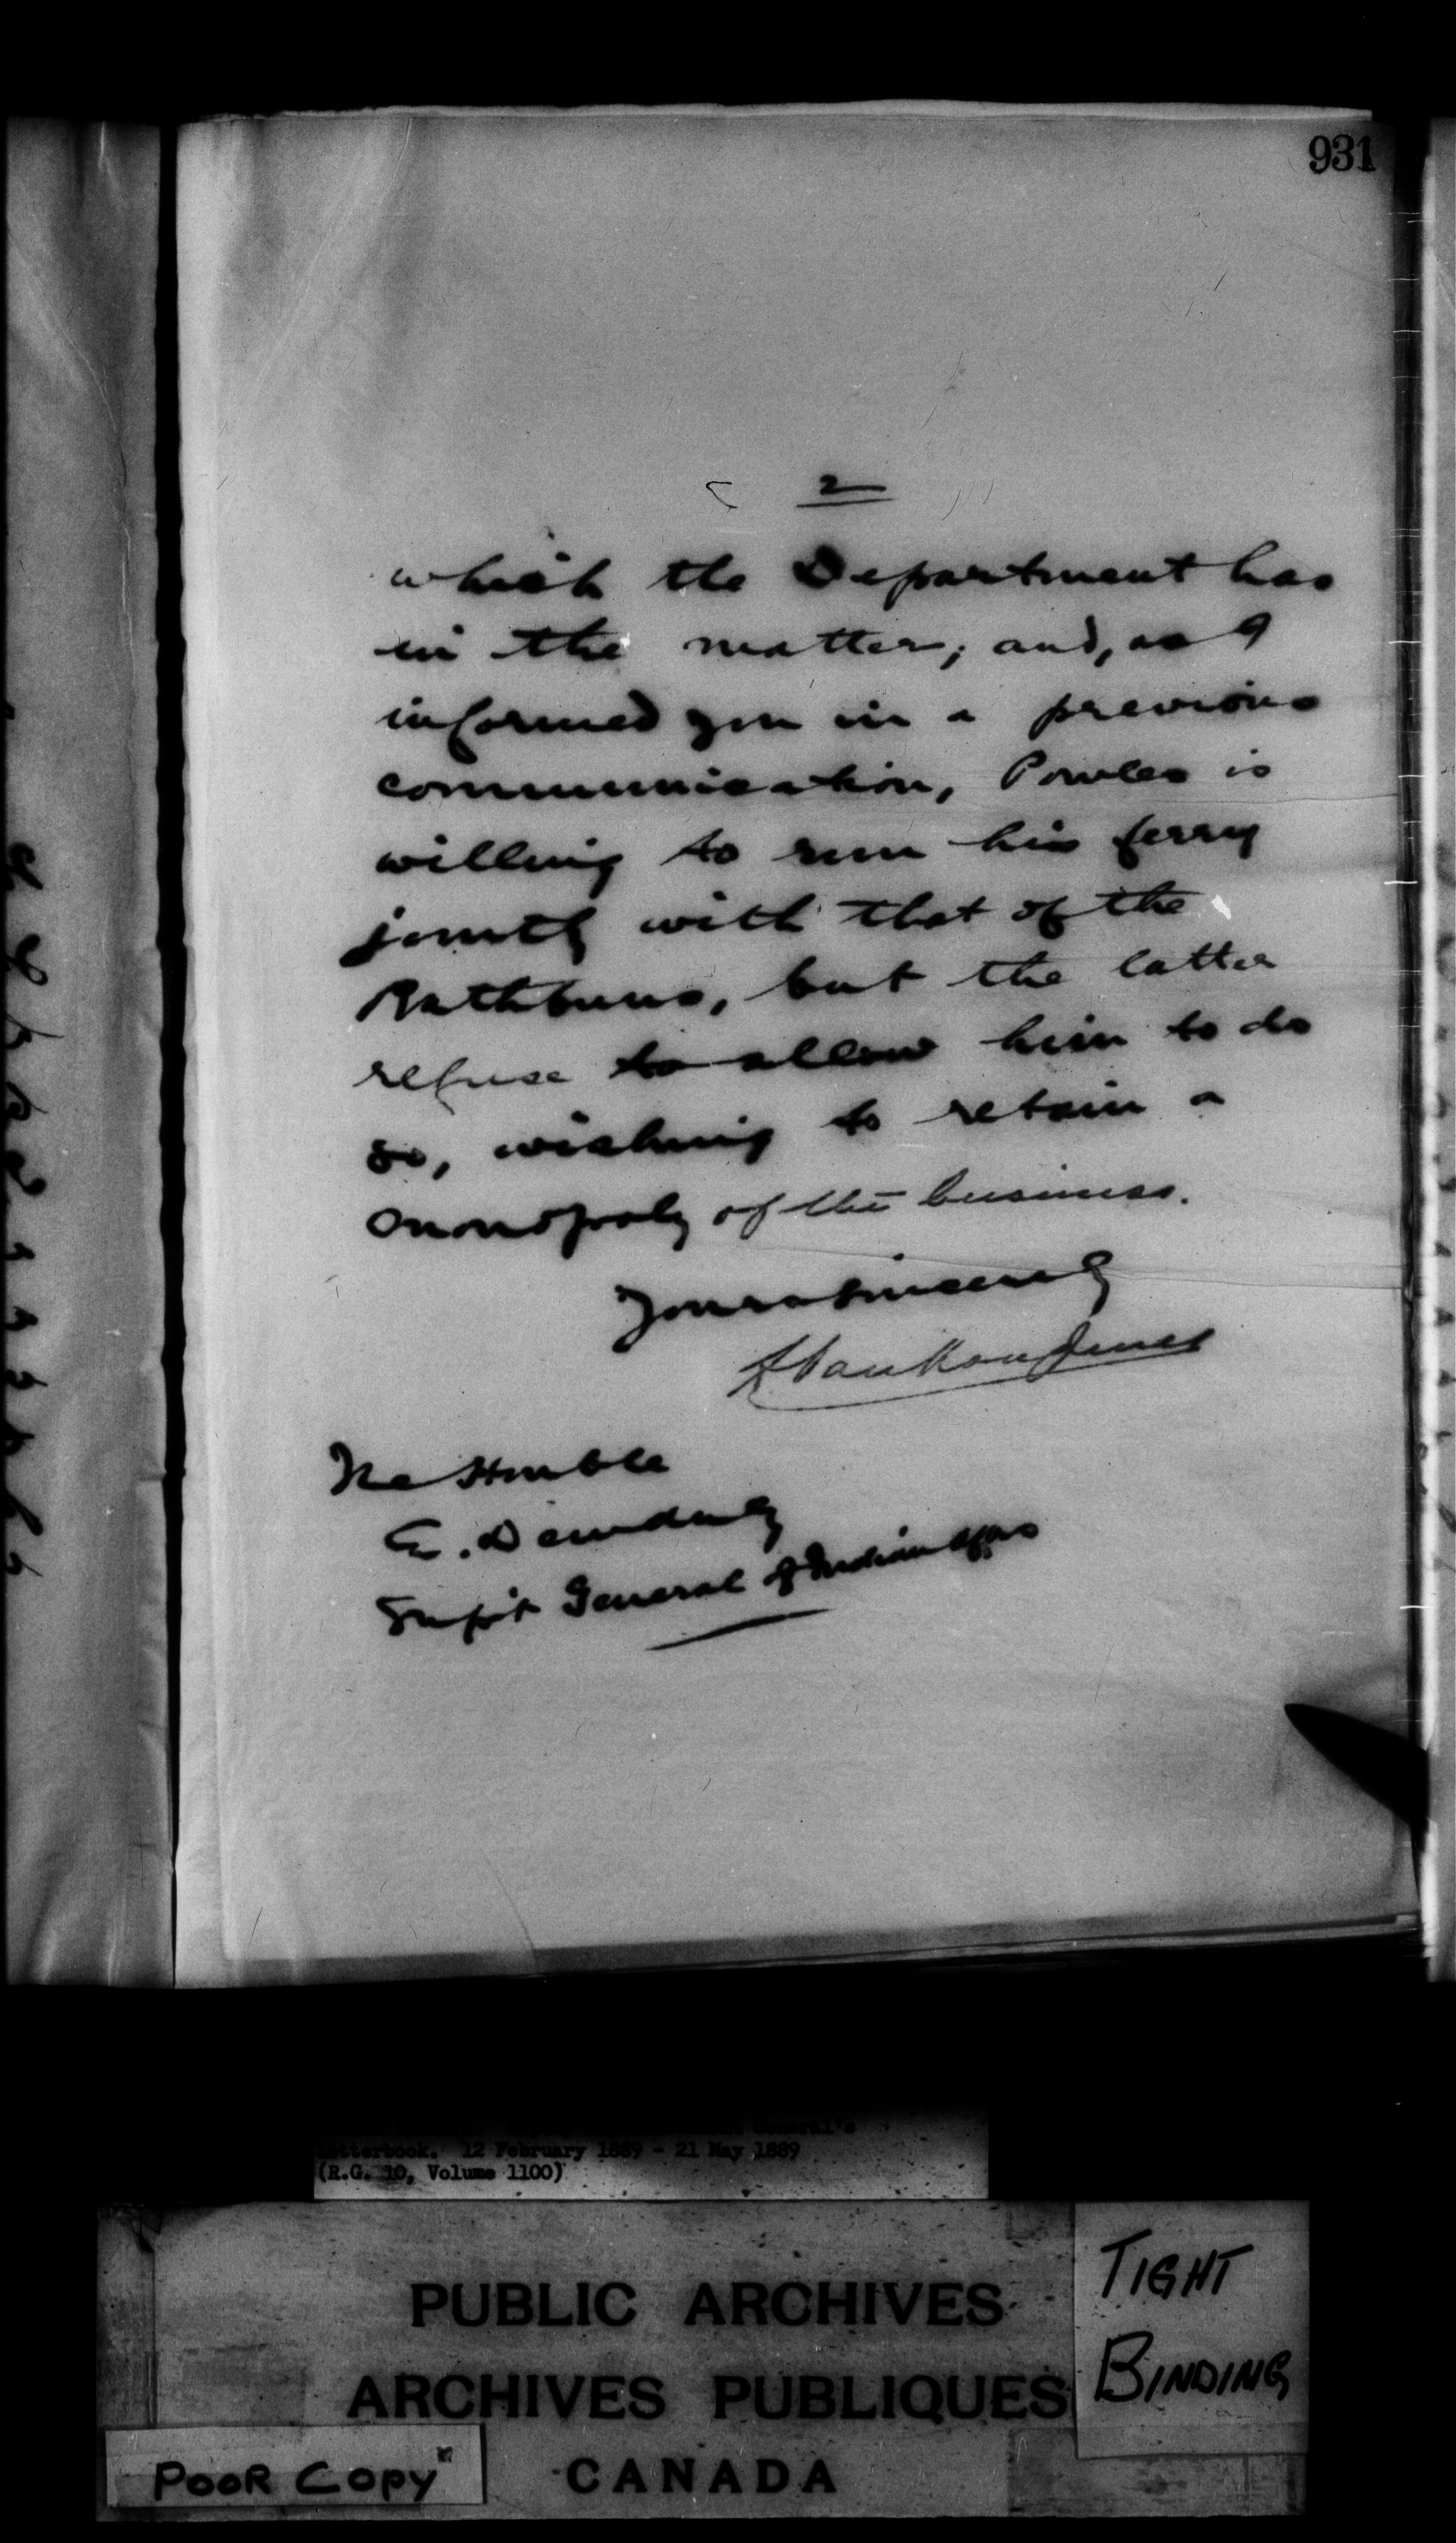 931
2
which the Department has
in the matter; and, as I
informed you in a previous
communication, Powles is
willing to run his ferry
jointly with that of the
Rathbuns, but the latter
refuse to allow him to do
so, wishing to retain a
monopoly of the business.
Yours sincerely
L Vankoughnet
The Honble
E. Dewdney
Supt General of Indian Affrs
General's
Letterbook. 12 February 1889 - 21 May 1889
(R.G. 10, Volume 1100)
PUBLIC ARCHIVES
ARCHIVES PUBLIQUES
CANADA
TIGHT
BINDING
POOR COPY